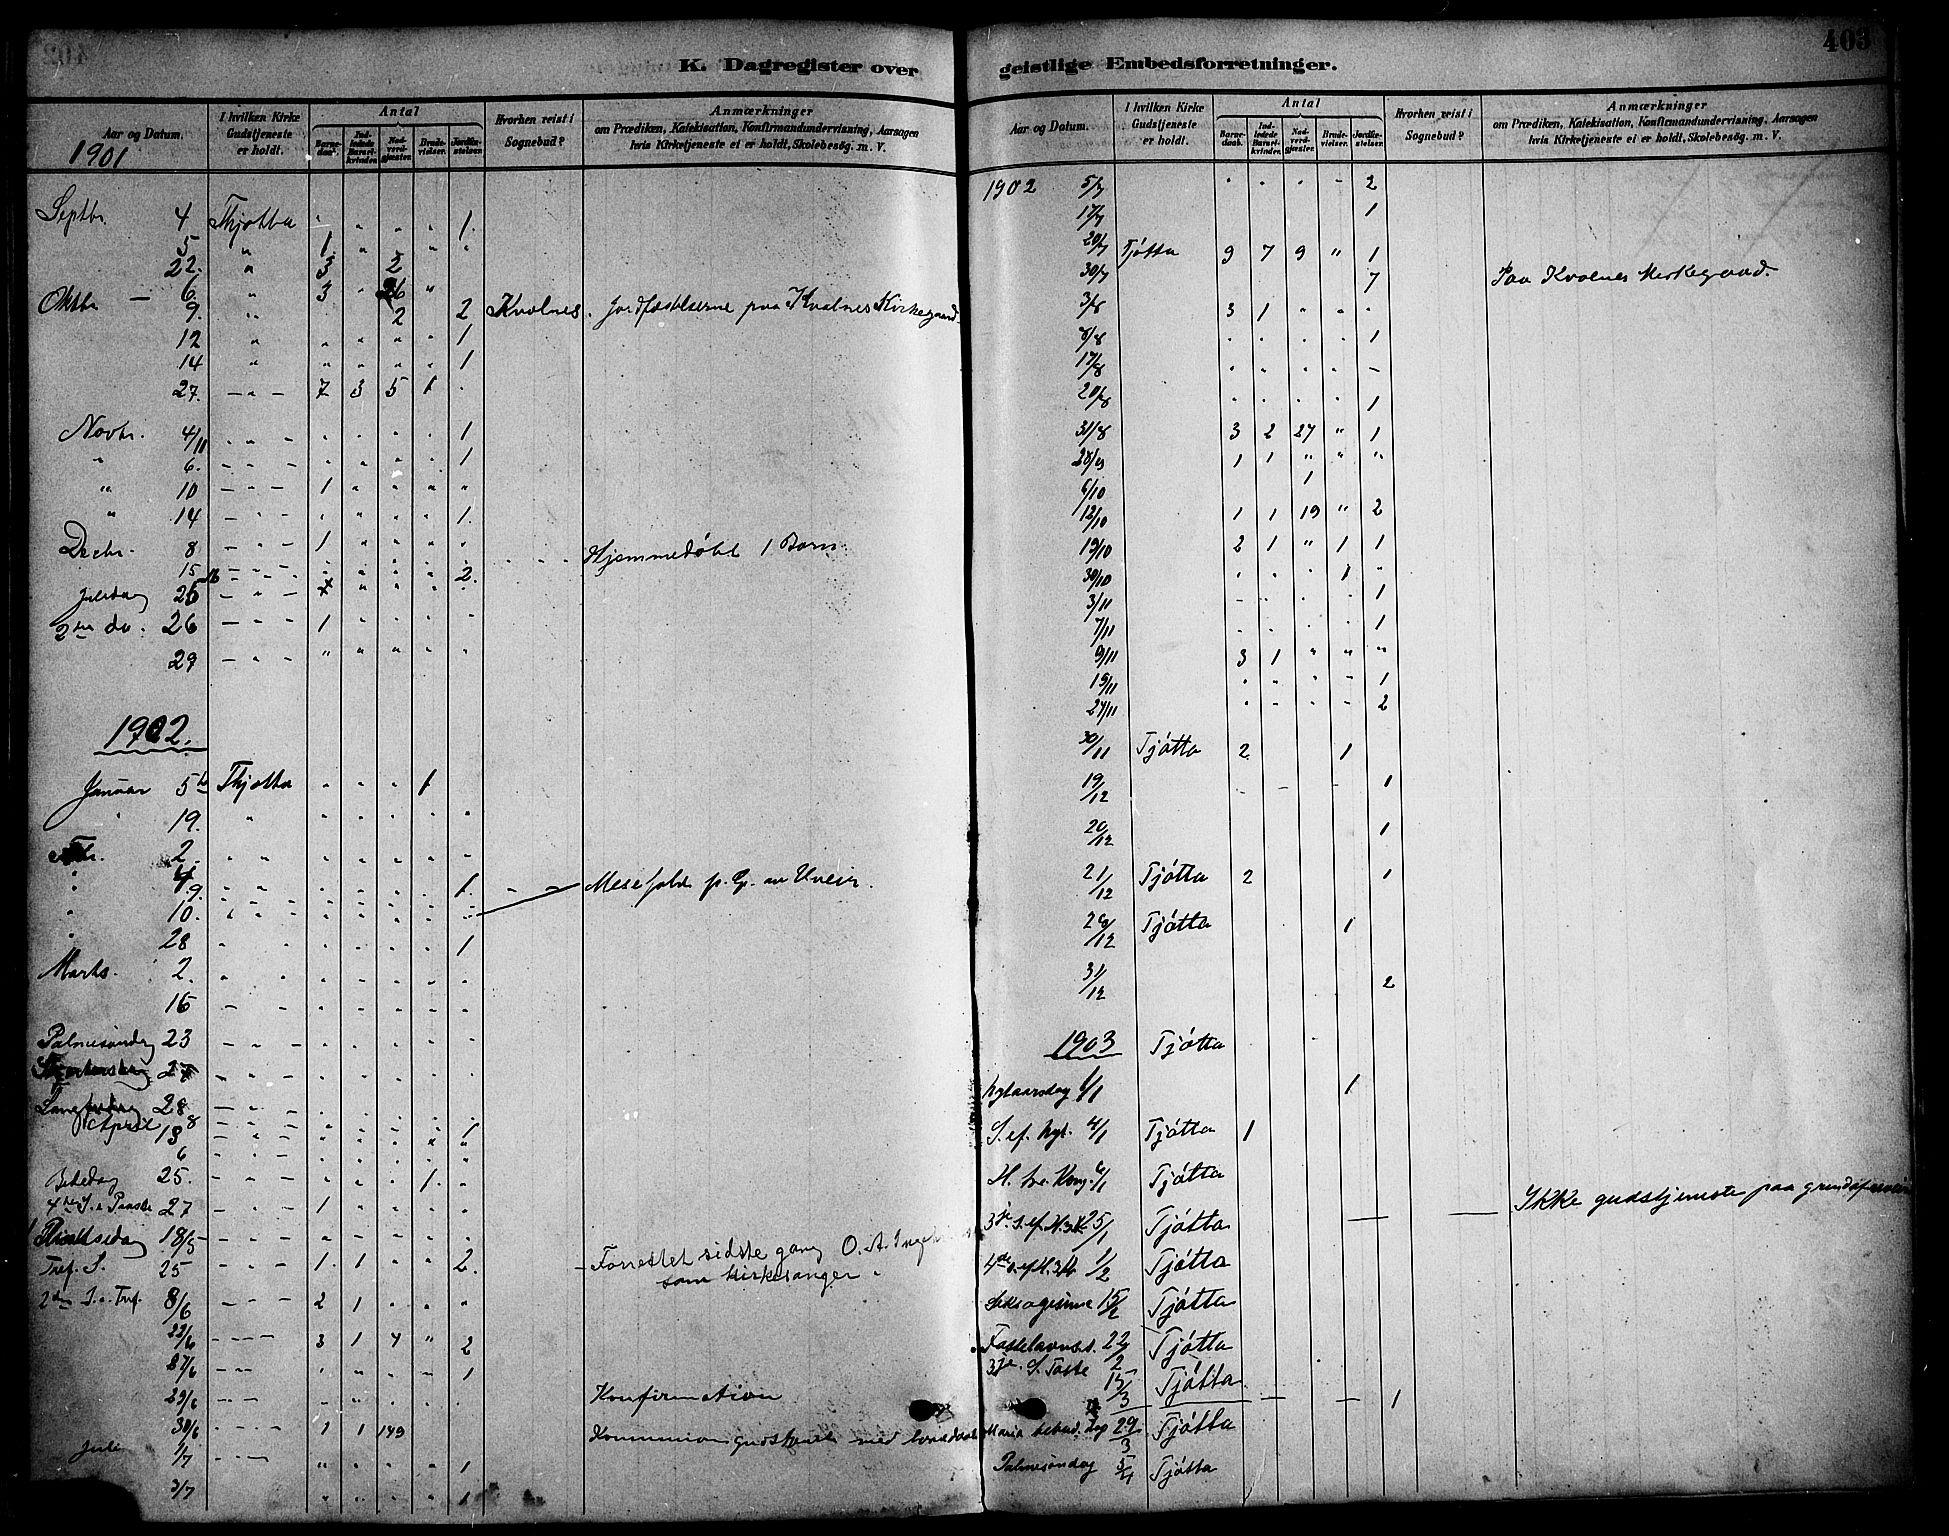 403
K. Dagregister over
Aar og Datum. | I hvilken Kirke Gudstjeneste er holdt. | Antal | Barnedaab. | Indledede Barselkvinder. | Nadverdgjester. | Brudevielser. | Jordfæstelser. | Hvorhen reist i Sognebud? | Anmærkninger om Prædiken, Katekisation, Konfirmandundervisning, Aarsagen hvis Kirketjeneste ei er holdt, Skolebesøg. m. V.
1901
Septbr. 4 Thjøtta " " " " 1.
5 " 1 " " " "
22. " 3 2
Oktbr - 6. " 3 " 26 "
9. " 2 2 Kvalnes. Jordfæstelserne paa Kvalnes Kirkegaard.
12 " " " " " 1
14 " " " " " 1
27. - " - 7 3 5 1 "
Novbr. 4/11 " " " " 1
" 6. - - - " " " " 1
" 10 - - - 1 " " " "
" 14 - " - " " " " 1.
Decbr. 8 - - - 1 " " " " Hjemmedøbt 1 Barn.
15 - - - " " " " 2.
Juledag 25 - " - " " " "
2den do. 26 - - - 1 " " " "
29 - " - " " " " "
1902.
Januar 5te Thjøtta " " " 1
" 19. " " " " " "
2. " " " " " " "
" 4
" 9. " " " " " " 1. - -
" 10. " " " " " " "
" 28 " " " " " " 1
Marts. 2. " " " " " " "
16 - - " " " " "
Palmesøndag 23 - " - " " " " "
27 - " - " " " " "
Langfredag 28 - " - " " " " "
April 8 - " - " " " " 1
13 - " - " " " " "
6 " " " " " " "
Bededag 25. - - - " " " 1. "
4de S. e. Paaske 27 - - - 1 " " " "
18/5 - - - " " " " "
Tref. S. 25 - " - 1. 1 " " 2. - Forrettet sidste gang O. A.
som kirkesanger.
2den S. e. Tref. 8/6 - - - 2 1 " " "
22/6 - - - 3 1 4 " 2
27/6 - - " " " " 1
29/6 - - " " " " Konfirmation
30/6 - - - 1 1 149 Kommunion
Juli 1/7 - - - " " " " 1
3/7 " " " " 1
geistlige Embedsforretninger.
Aar og Datum. | I hvilken Kirke Gudstjeneste er holdt. | Antal | Barnedaab. | Indledede Barselkvinder. | Nadverdgjester. | Brudevielser. | Jordfæstelser. | Hvorhen reist i Sognebud? | Anmærkninger om Prædiken, Katekisation, Konfirmandundervisning, Aarsagen hvis Kirketjeneste ei er holdt, Skolebesøg. m. V.
1902 5/7 " " " - 2
17/7 1
20/7 Tjøtta 9 7 9 " 1
30/7 7 Paa Kvalnes kirkegaard.
3/8 3 1 " " "
8/8 " " " " 1
17/8 " " " " -
20/8 " " " " 1
31/8 3 2 27 " 1
28/9 1 1 " " "
6/10 1
12/10 1 1 19 " 2
19/10 2 1 " 1 1
30/10 " " " 1 "
3/11 - " " " 1
7/11 " " " " 1
9/11 3 1 " " "
19/11 " " " - 1
27/11 " - " - 2
30/11 Tjøtta 2 1
19/12 - - - 1
20/12 1
21/12 Tjøtta 2 1
26/12 Tjøtta 1
31/12 2
1903 Tjøtta
Nytaarsdag 1/1 1
S. ef. Nyt. 4/1 Tjøtta 1
H. tre Kong. 6/1 Tjøtta
3je S. ef. H. 3 K. 25/1 Tjøtta — — Ikke gudstjeneste paa grund af
4de S. ef. H. 3 K. 1/2 Tjøtta
Seksagesima 15/2 Tjøtta
Fastelavnss. 22/2 Tjøtta
3je S. Faste 15/3 Tjøtta - - 1
Maria bebud. dag 29/3 Tjøtta
Palmesøndag 5/4 Tjøtta